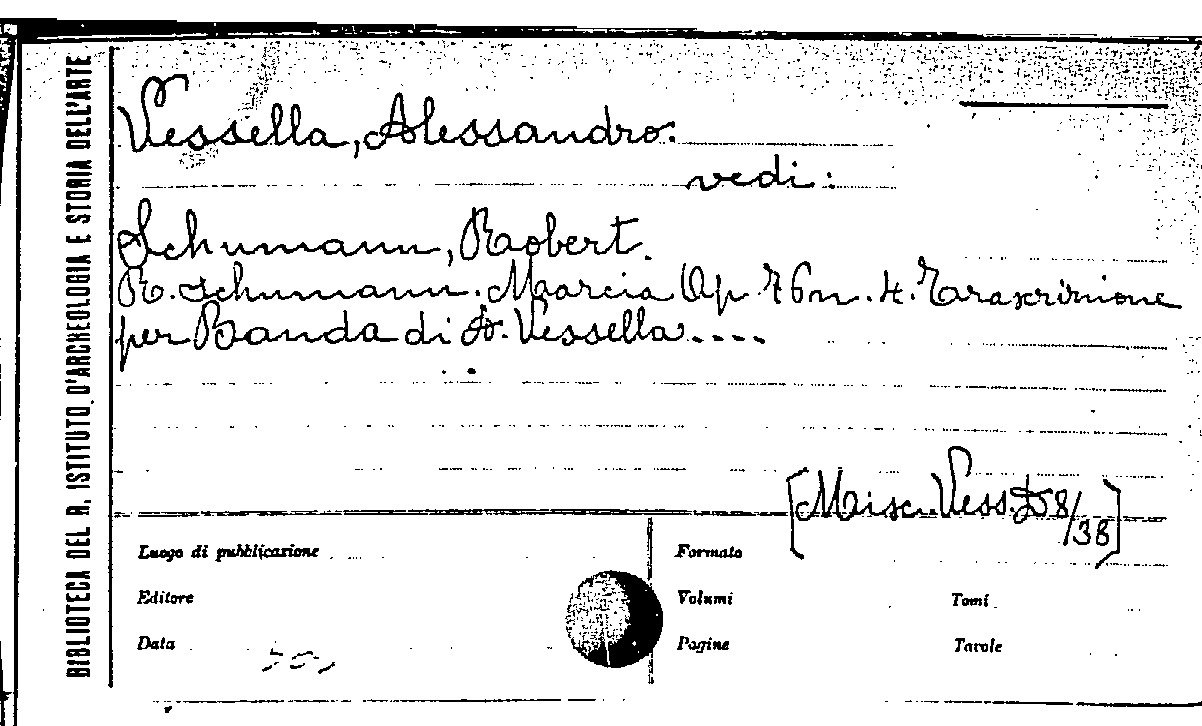 BIBLIOTECA DEL R. ISTITUTO D'ARCHEOLOGIA E STORIA DELL'ARTE
Vessella, Alessandro.
vedi:
Schumann, Robert.
R. Schumann. Marcia Op. 76 n. 4. Trascrizione
per Banda di A. Vessella....
[Misc. Vess. D 8/38]
Luogo di pubblicazione
Formato
Editore
Volumi
Tomi
Data
Pagine
Tavole